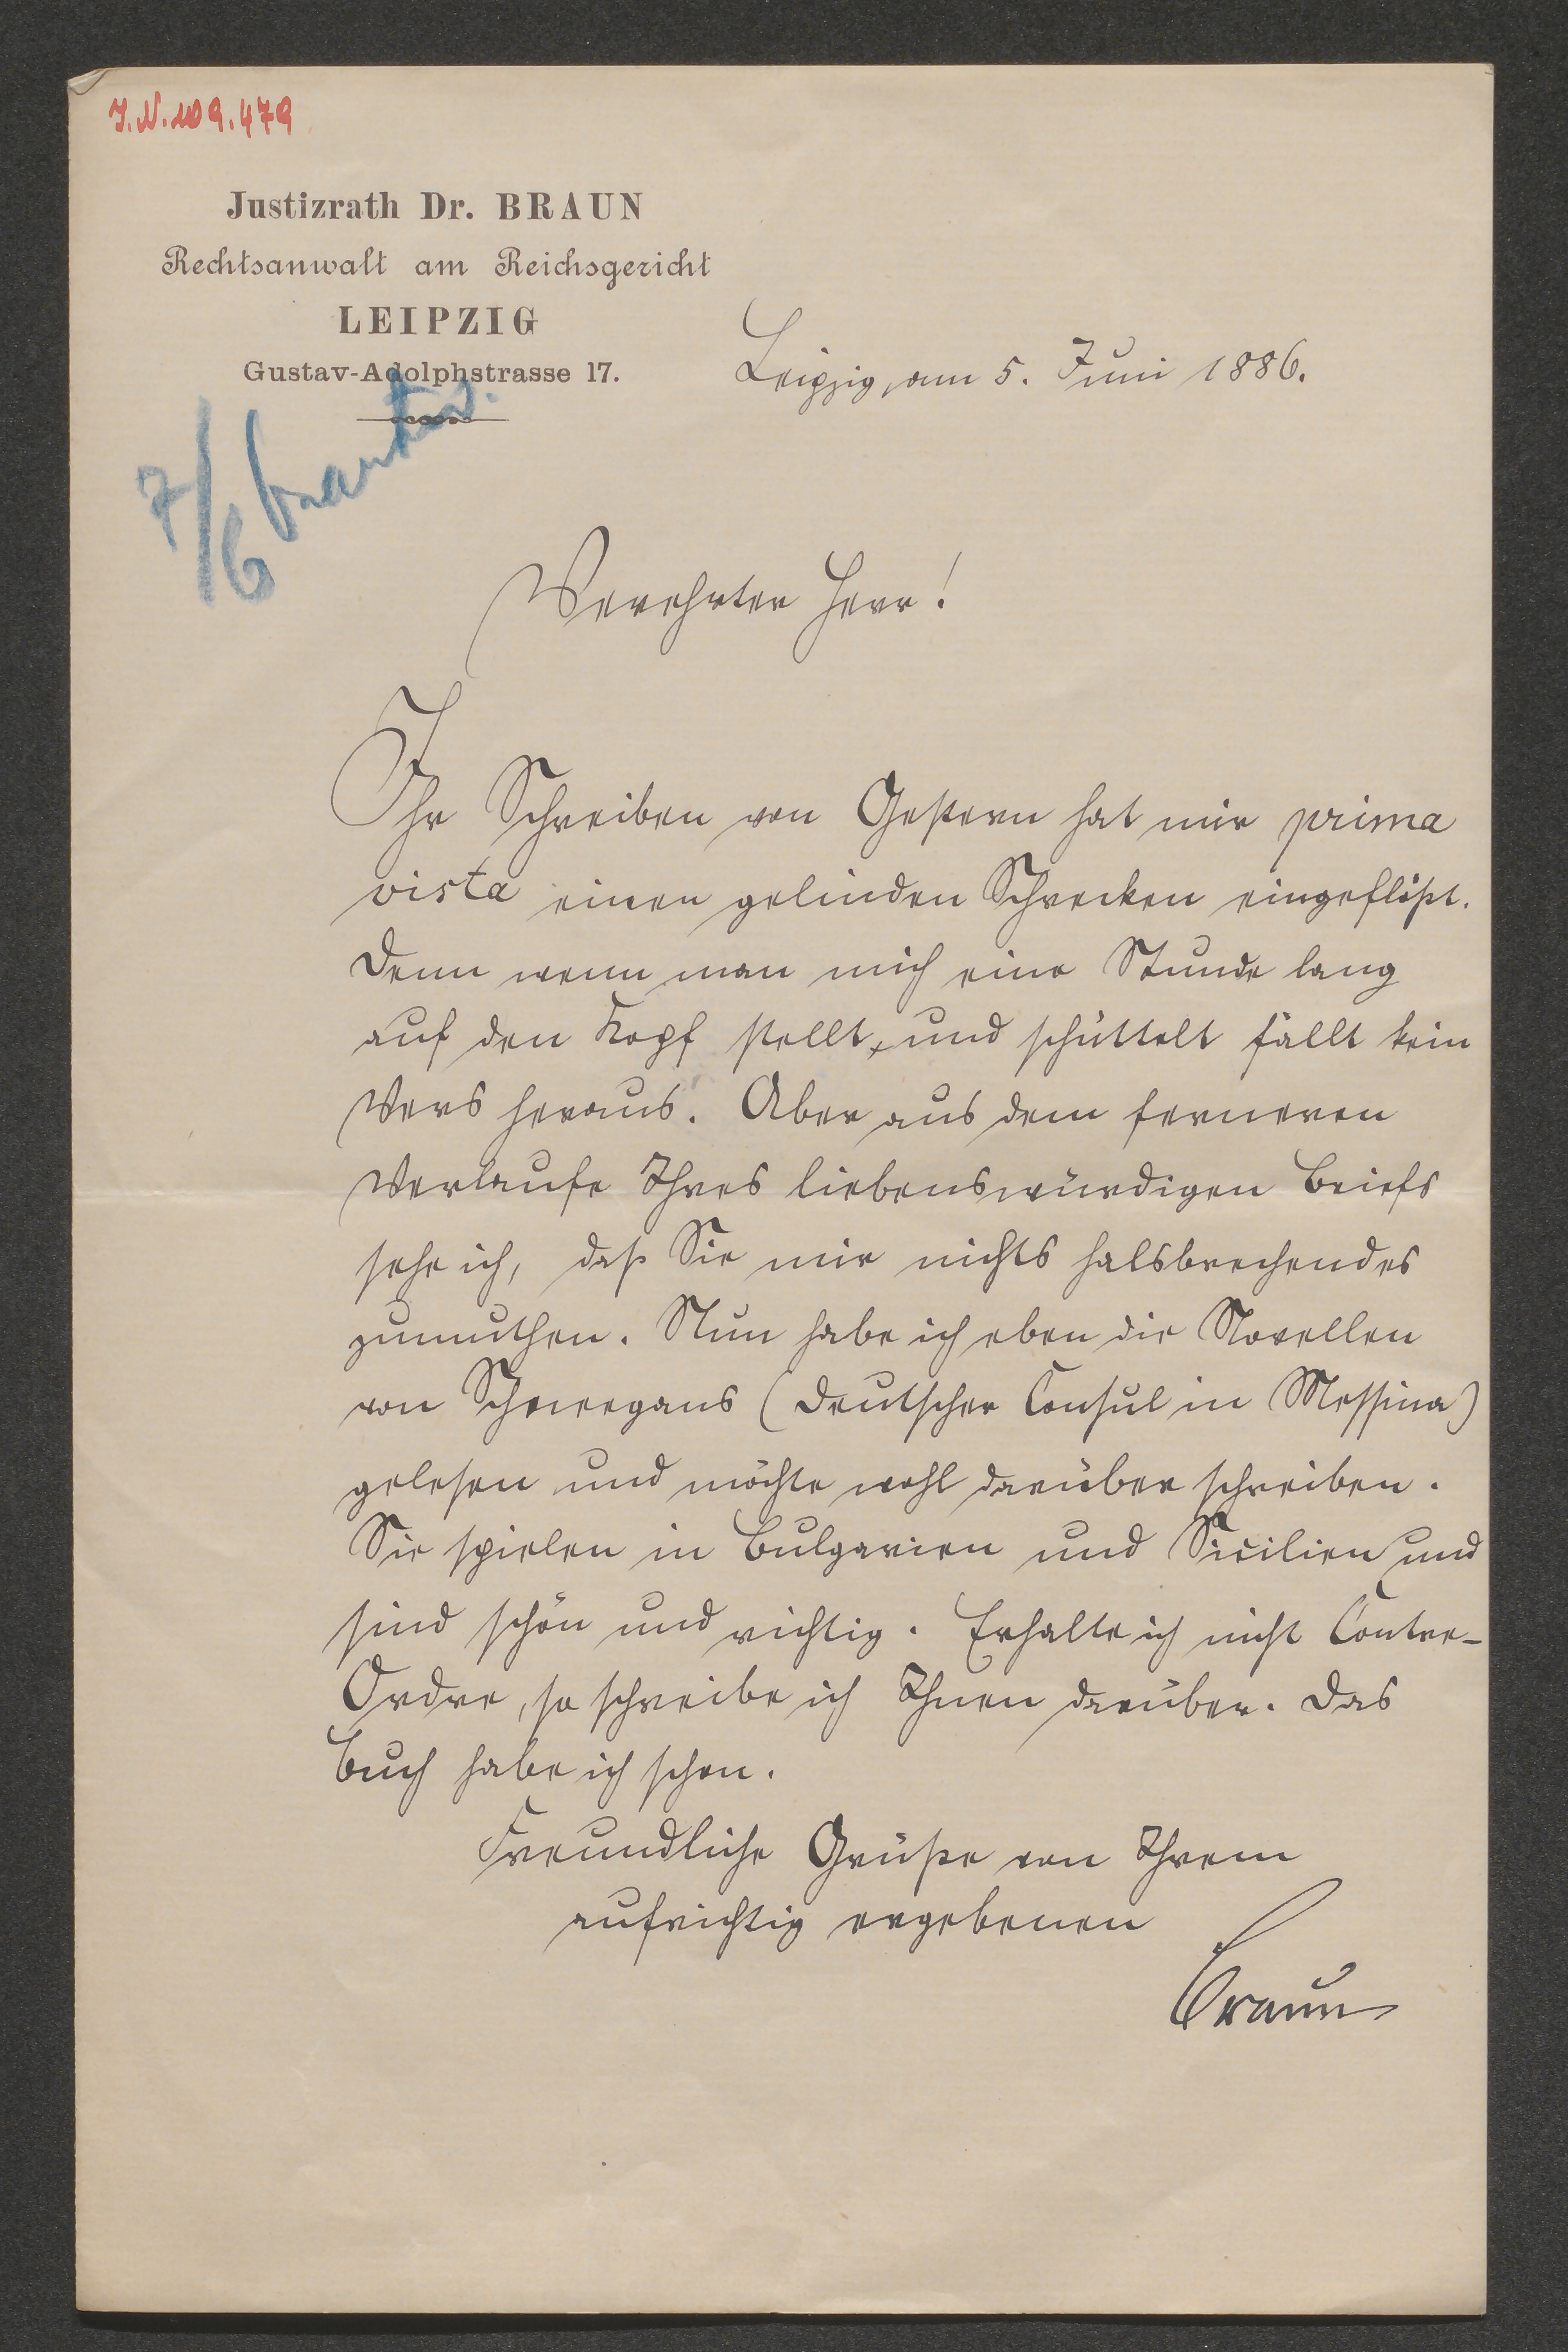 J.N. 109.479
Justizrath Dr. BRAUN
Rechtsanwalt am Reichsgericht
LEIPZIG
Gustav-Adolphstrasse 17.
Leipzig, am 5. Juni 1886.
7/6
Verehrter Herr!
Ihr Schreiben von Gestern hat mir prima
vista einen gelinden Schrecken eingeflößt.
Denn wenn man mich eine Stunde lang
auf den Kopf stellt, und schüttelt fällt kein
Vers heraus. Aber aus dem ferneren
Verlaufe Ihres liebenswürdigen Briefs
sehe ich, daß Sie mir nichts halsbrechendes
zumuthen. Nun habe ich eben die Novellen
von Schneegans (Deutscher Consul in Messina)
gelesen und möchte wohl darüber schreiben.
Sie spielen in Bulgarien und Sicilien und
sind schön und richtig. Erhalte ich nicht Contre-
Ordre, so schreibe ich Ihnen darüber. Das
Buch habe ich schon.
Freundliche Grüße von Ihrem
aufrichtig ergebenen
Braun